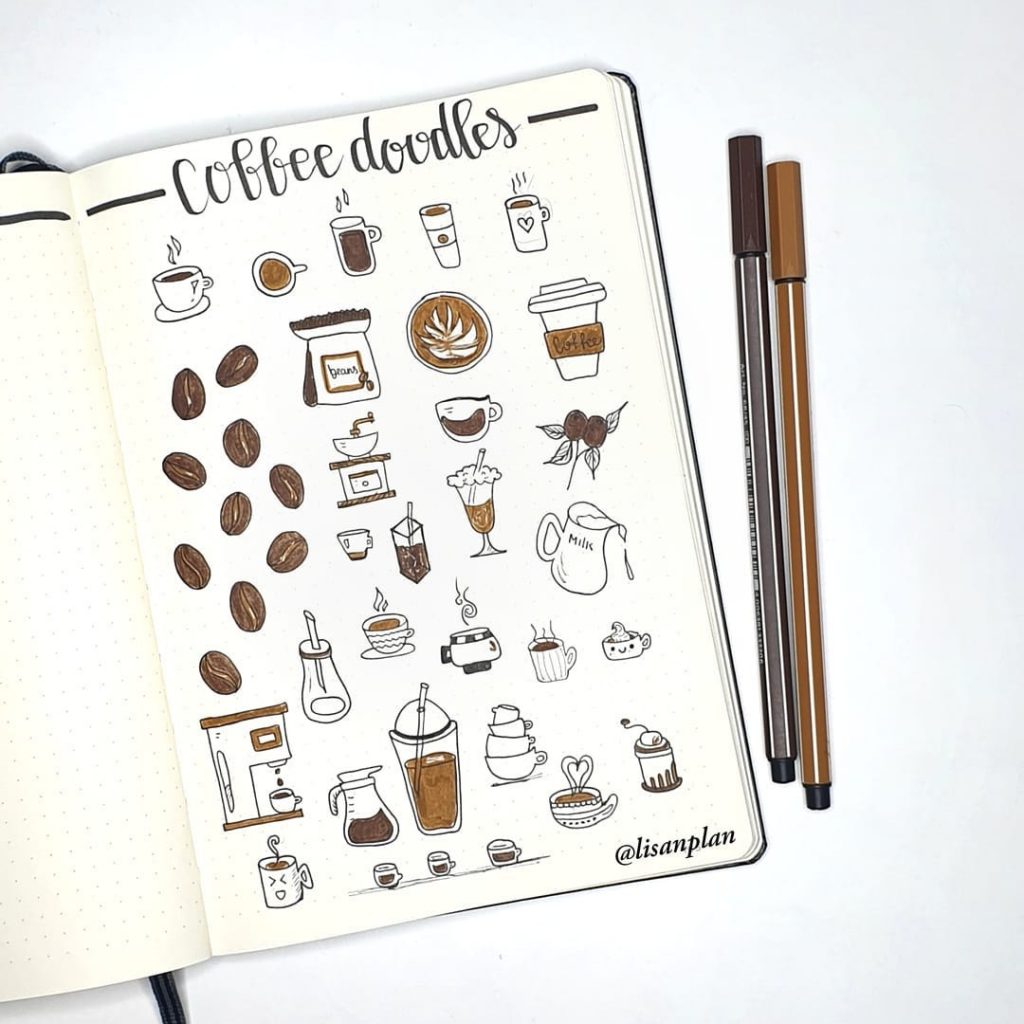 Coffee doodles
beans
Coffee
Milk
@lisanplan